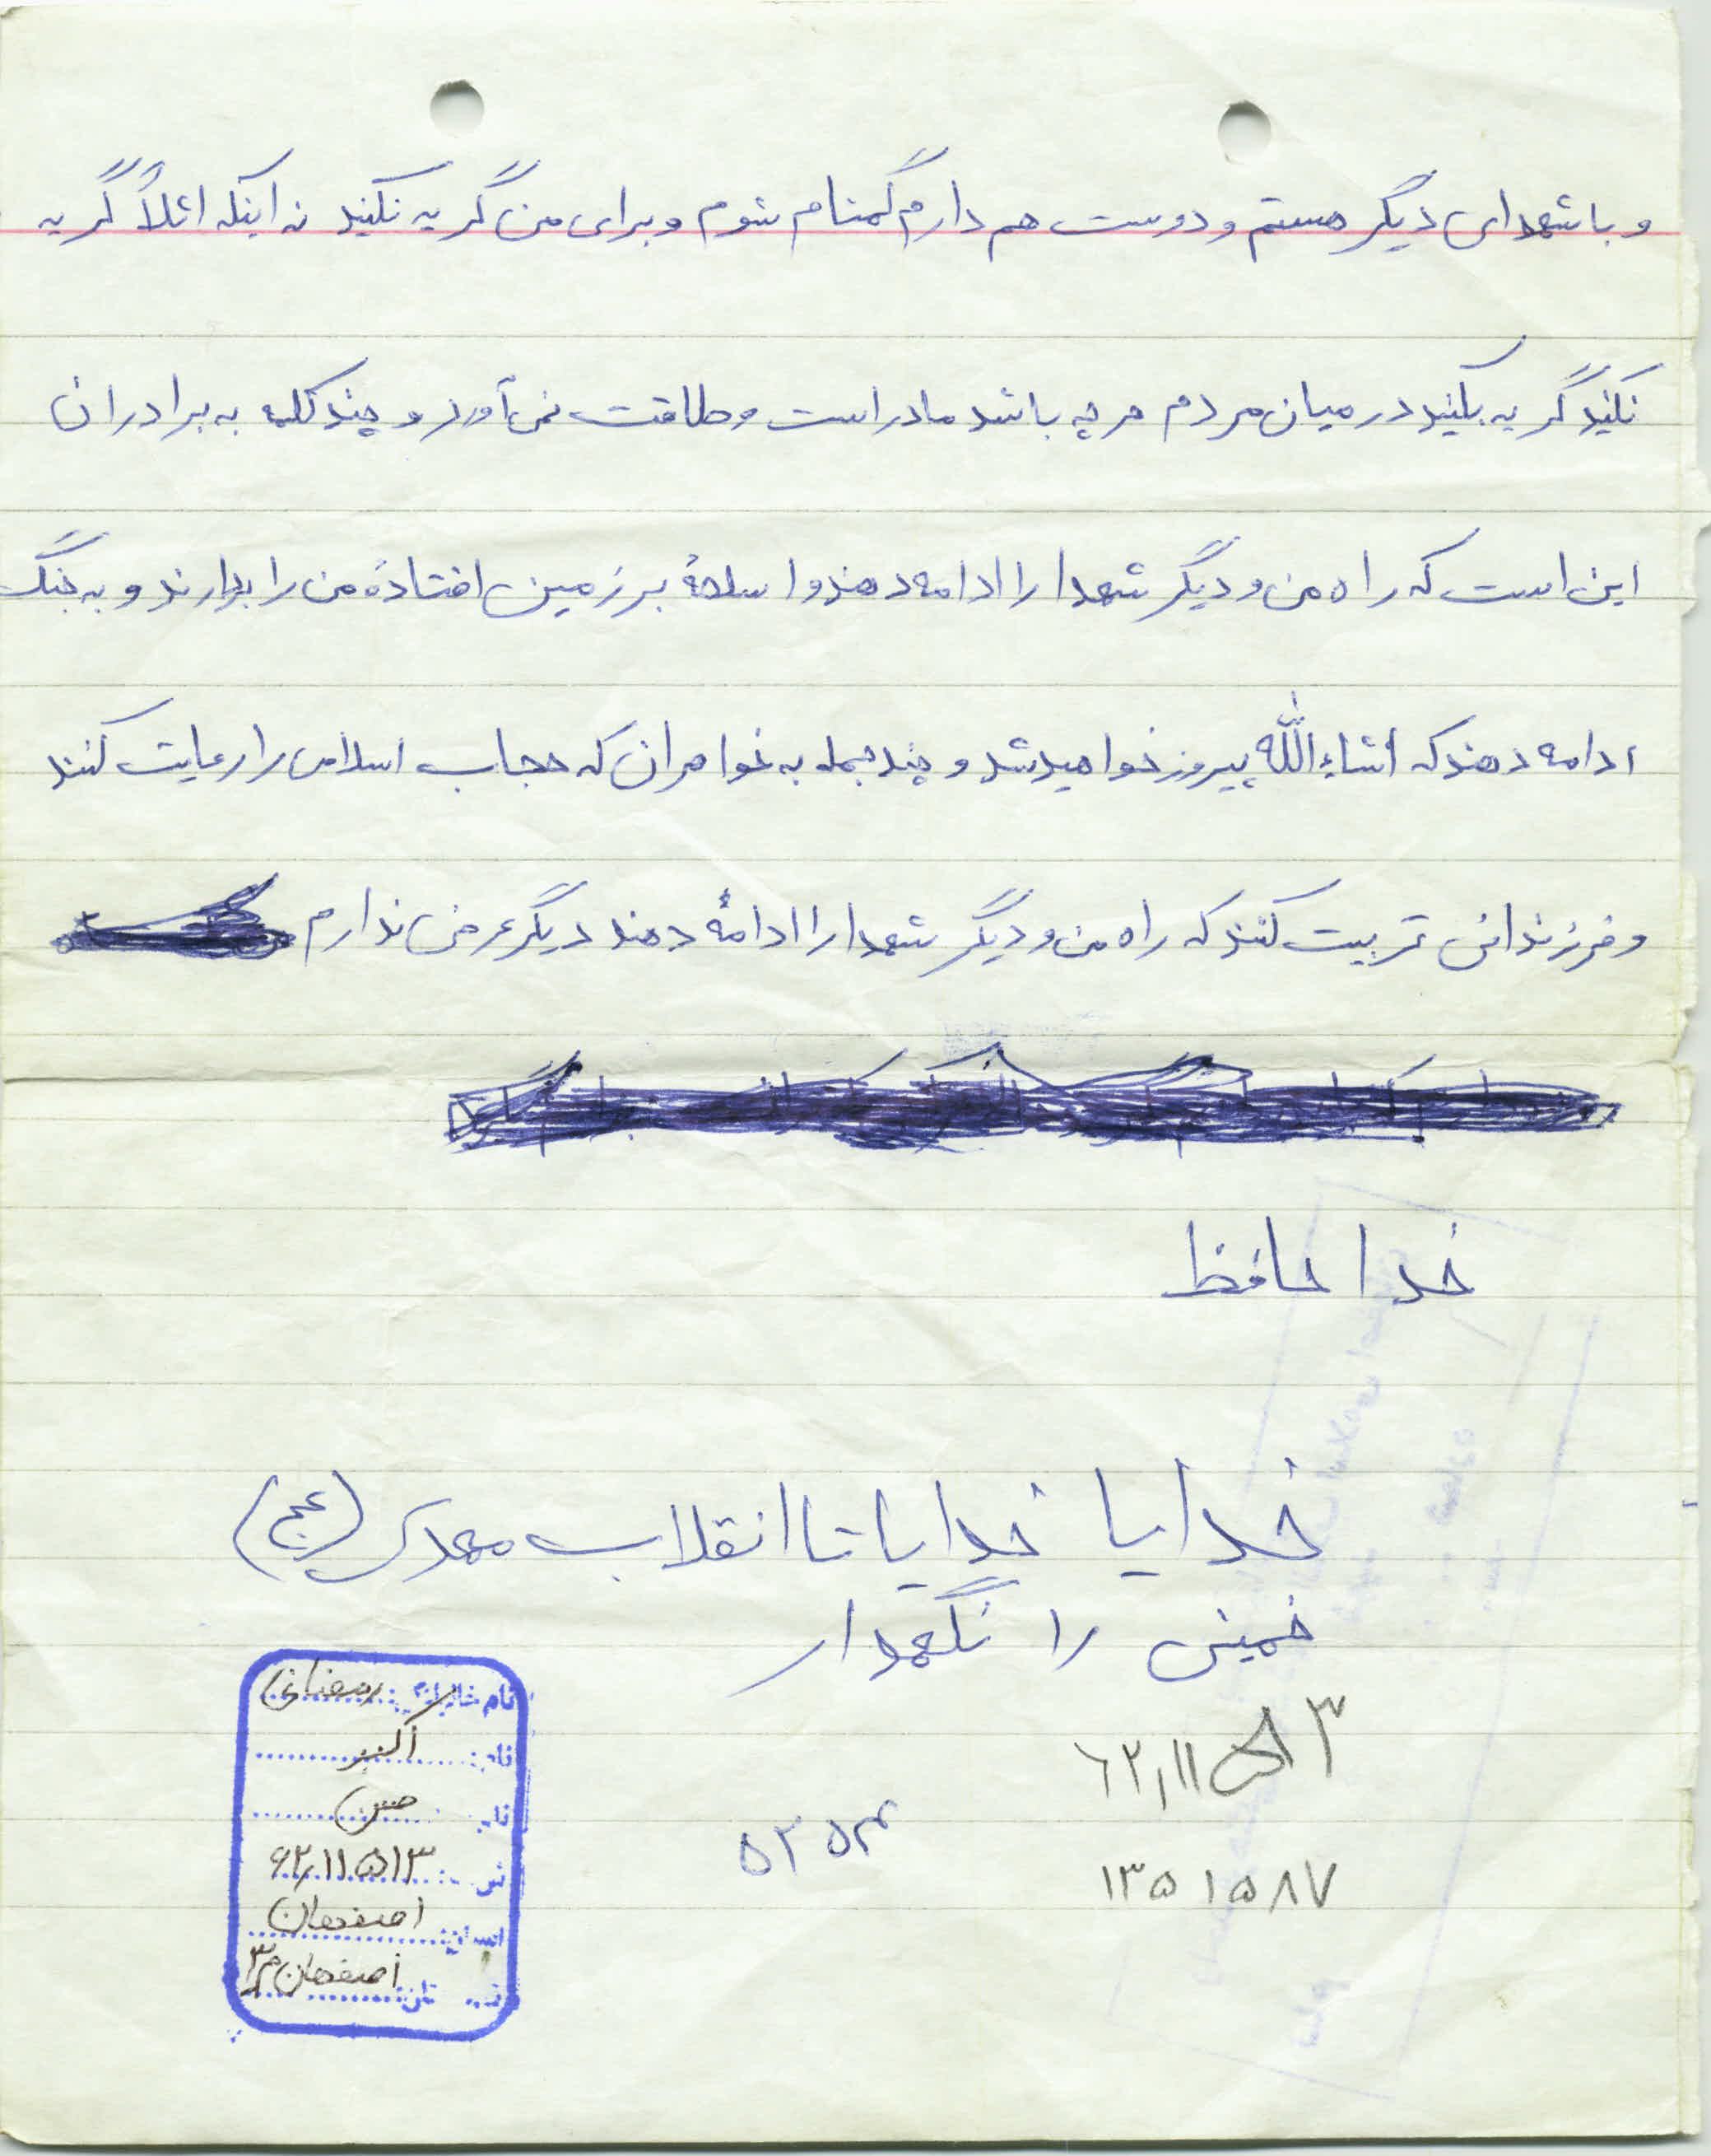 و با شهدای دیگر هستم و دوست هم دارم گمنام شوم و برای من گریه نکنید نه اینکه اثلاً گریه
نکنید گریه بکنید در میان مردم هر چه باشد مادر است و طاقت نمی‌آورد و چند کلمه به برادران
این است که راه من و دیگر شهدا را ادامه دهند و اسلحهٔ بر زمین افتادهٔ من را بردارند و به جنگ
ادامه دهند که انشاءالله پیروز خواهید شد و چند جمله به خواهران که حجاب اسلامی را رعایت کنند
و فرزندانی تربیت کنند که راه من و دیگر شهدا را ادامهٔ دهند دیگر عرضی ندارم
خدا حافظ
خدایا خدایا تا انقلاب مهدی (عج)
خمینی را نگهدار
نام خانوادگی: رمضانی
نام: اکبر
نام: حسن
۶۲٫۱۱٫۵۱۳
استان: اصفهان
اصفهان م۳
۳ ۶۲٫۱۱
۵۲۵۳
۱۳۵۱۵۸۷